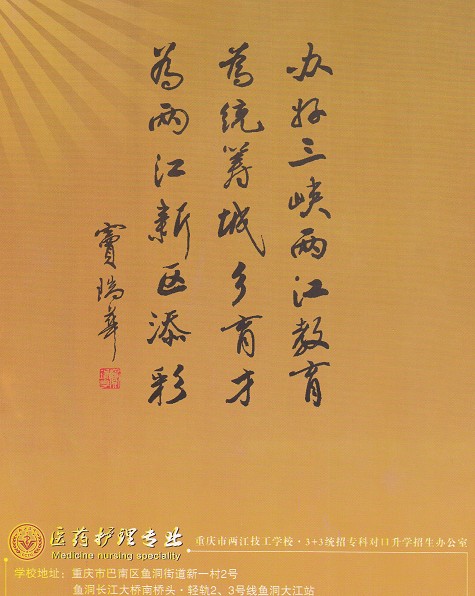 办好三峡两江教育
为统筹城乡育才
为两江新区添彩
窦瑞华
医药护理专业
Medicine nursing speciality
重庆市两江技工学校·3+3统招专科对口升学招生办公室
学校地址：重庆市巴南区鱼洞街道新一村2号
鱼洞长江大桥南桥头·轻轨2、3号线鱼洞大江站